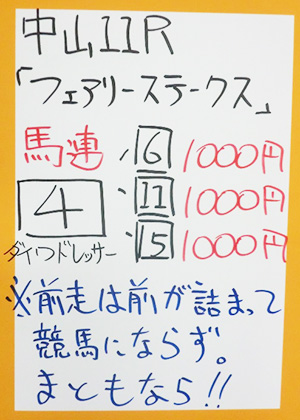 中山11R
「フェアリーステークス」
馬連 、6 1000円
4 、11 1000円
ダイワドレッサー 、15 1000円
※前走は前が詰まって
競馬にならず。
まともなら!!